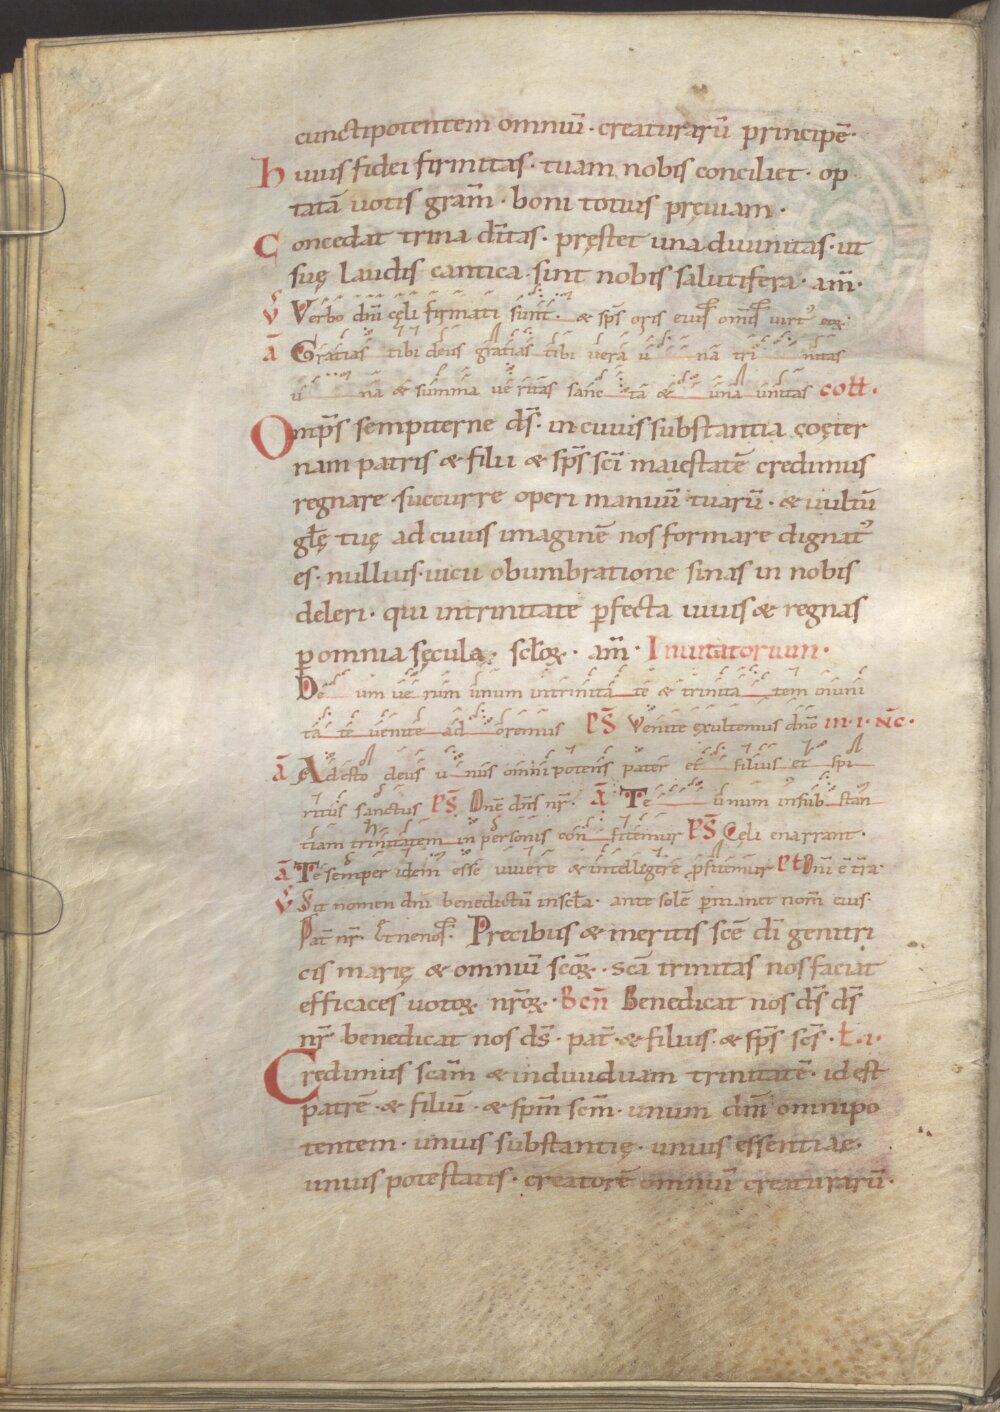 cunctipotentem omniū · creaturarū principē ·
h uius fidei firmitas · tuam nobis conciliet · op
tatā uotis gram̄ · boni totius pręuiam ·
C oncedat trina dīitas · pręstet una diuinitas · ut
suę laudis cantica · sint nobis salutifera · am̄ ·
V̄ Verbo dnī cęli firmati sunt · & sps̄ oris eius om̄is uirt᾽ eoꝝ
ā Gratias tibi deus gratias tibi uera u na tri nitas
u na & summa ue ritas sanc ta & una unitas coll̄ ·
Omp̄s sempiterne ds̄ · in cuius substantia coęter
nam patris & filii & sps̄ scī maiestatē credimus
regnare · succurre operi manuū tuarū · & uultū
gl̄ę tuę ad cuius imaginē nos formare dignat᾽
es · nullius uicii obumbratione sinas in nobis
deleri · qui in trinitate ꝑfecta uiuis & regnas
ꝑ omnia sęcula · scl̄oꝝ · am̄ · Inuitatorium ·
De um ue rum unum in trinita te & trinita tem in uni
ta te uenite ad oremus PS̄ Venite exultemus dnō IN · I · NC̄ ·
ā Adesto deus u nus omni potens pater et filius et spi
ritus sanctus PS̄ Dn̄e dn̄s nr̄ · ā Te unum in sub stan
tiam trinitatem in personis con fitemur PS̄ Cęli enarrant ·
ā Te semper idem esse uiuere & intelligere ꝓfitemur PS̄ Dn̄i ē t̄ra
V̄ Sit nomen dn̄i benedictū in scl̄a · ante solē ꝑmanet nom̄ eius ·
Pat̄ nr̄ · Et ne nos · Precibus & meritis scē dī genitri
cis marię & omniū scōꝝ · scā trinitas nos faciat
efficaces uotoꝝ nr̄oꝝ · Bcn̄ Benedicat nos ds̄ ds̄
nr̄ benedicat nos ds̄ · pat̄ · & filius · & sps̄ scs̄ · L̄ · I ·
Credimus scām & indiuiduam trinitatē · id est
patrē · & filiū · & spm̄ scm̄ · unum dm̄ omnipo
tentem · unius substantię · unius essentiae ·
unius potestatis · creatorē omniū creaturarū ·